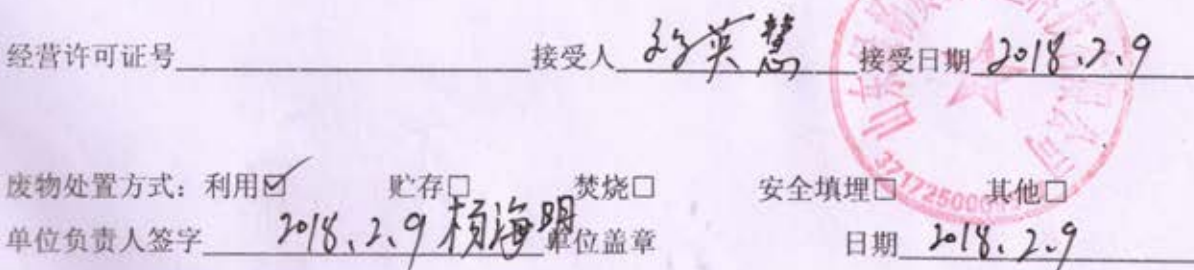 经营许可证号 接受人 英慧 接受日期 2018.2.9
废物处置方式：利用☑ 贮存□ 焚烧□ 安全填埋□ 其他□
单位负责人签字 2018.2.9 杨海明 单位盖章 日期 2018.2.9